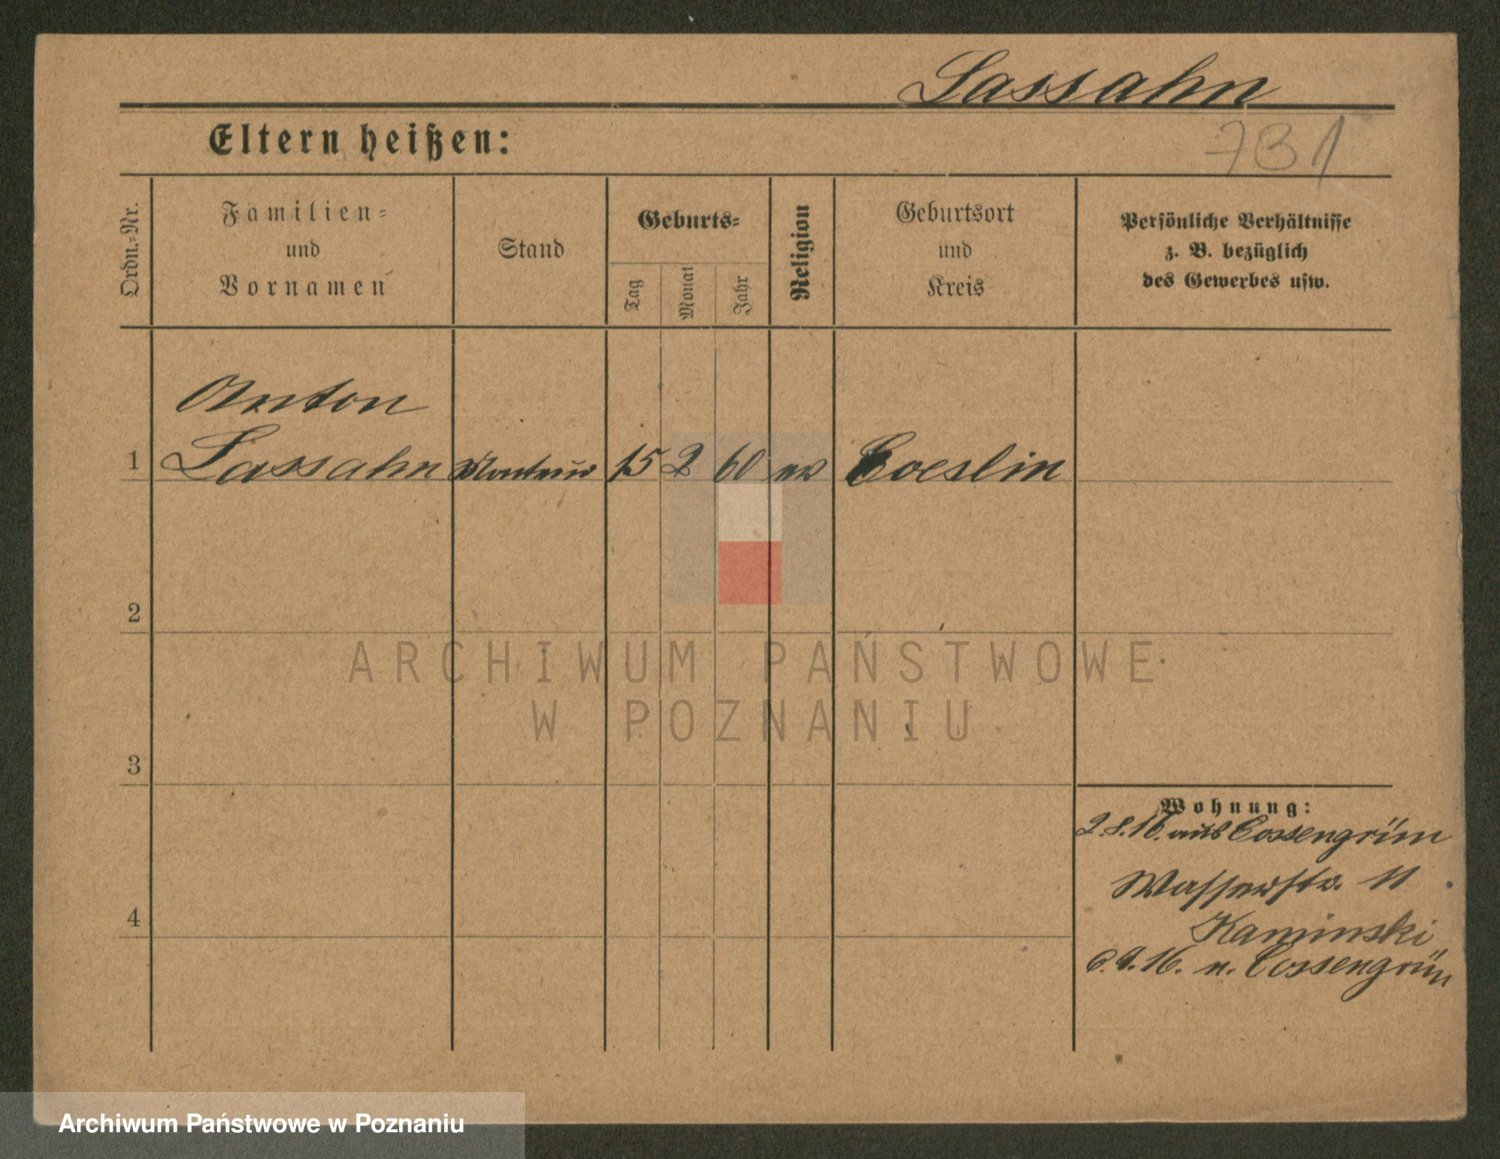 Lassahn
Eltern heißen:
731
Ordn.-Nr.
Familien-
und
Vornamen
Stand
Geburts-
Tag
Monat
Jahr
Religion
Geburtsort
und
Kreis
Persönliche Verhältnisse
z. B. bezüglich
des Gewerbes usw.
Anton
1 Lassahn Monteur 15 2 60 ev Coeslin
2
3
4
Wohnung:
2.8.16. aus Cossengrün
Wasserstr. 11
Kaminski
6.9.16. n. Cossengrün
ARCHIWUM PAŃSTWOWE
W POZNANIU
Archiwum Państwowe w Poznaniu